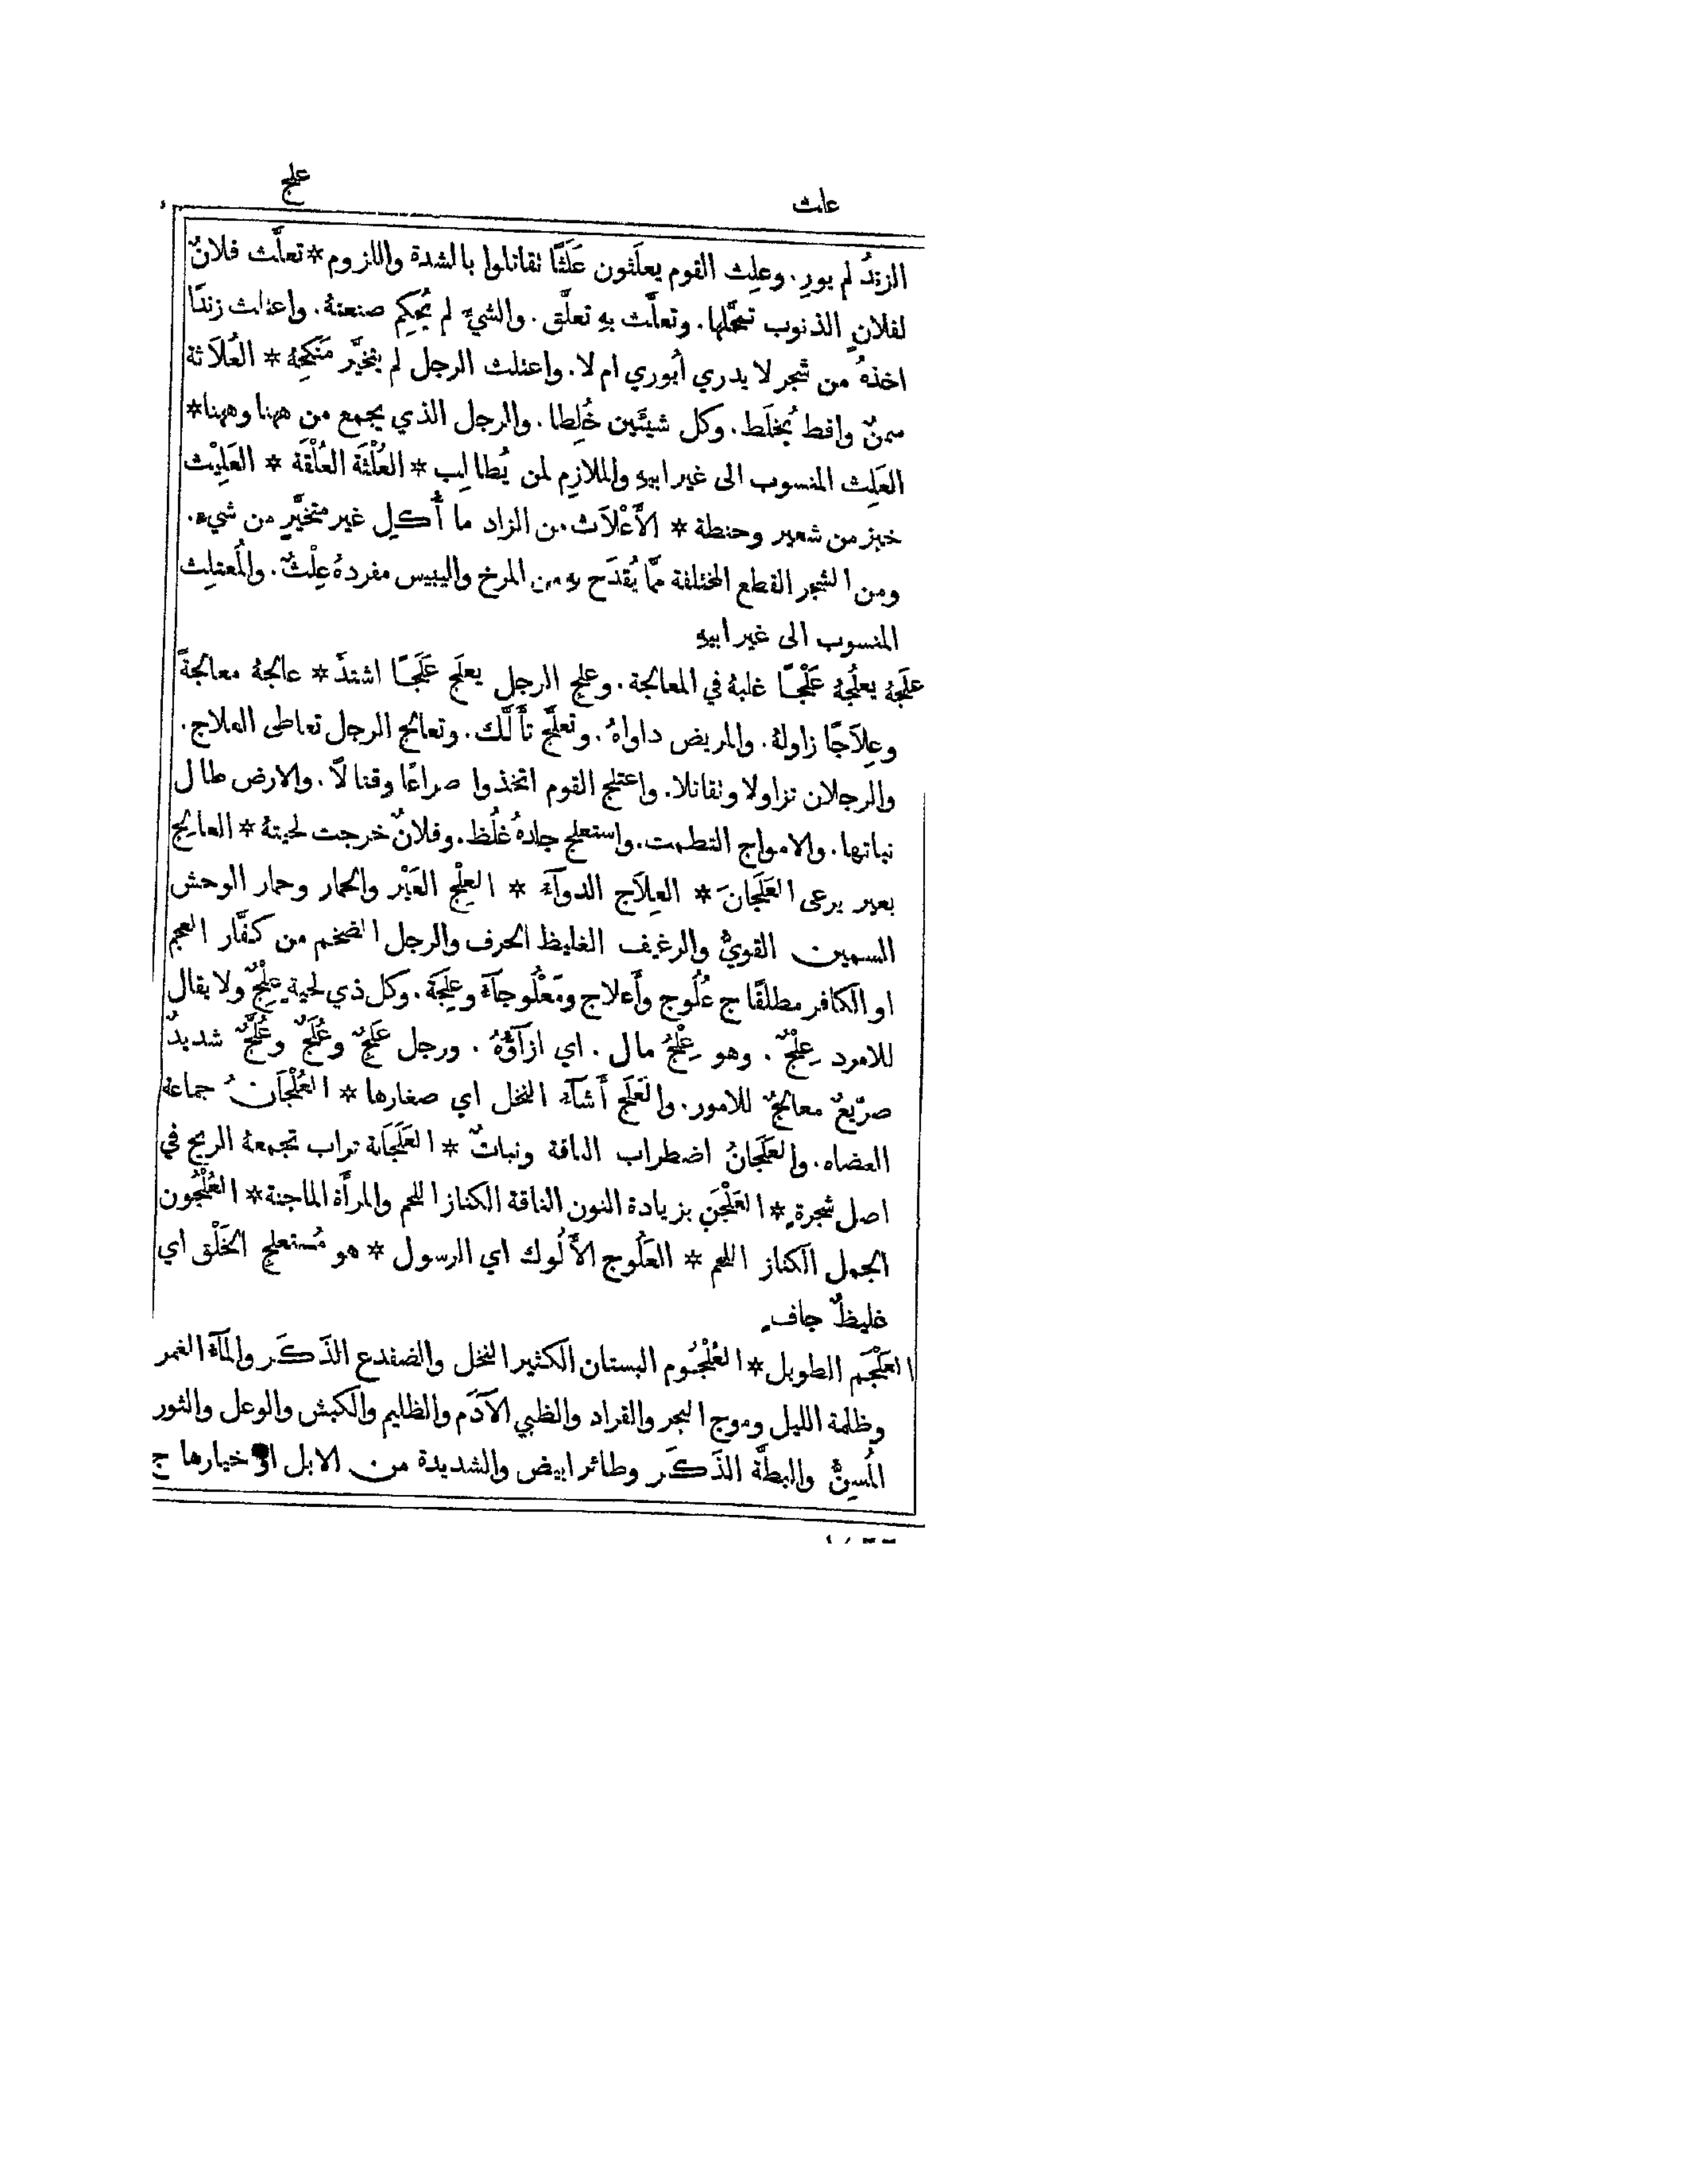 علث
علج
الزندُ لم يورِ. وعلِث القوم يعلَثون عَلَثًا تقاتلوا بالشدة واللزوم * تعلَّث فلانٌ
لفلانٍ الذنوب تمحَّلها. وتعلَّث بهِ تعلَّق. والشيءَ لم يُحكِم صنعتهُ. واعتلث زندًا
اخذهُ من شجر لا يدري أيوري ام لا. واعتلث الرجل لم يتخيَّر مَنكِحهُ * العُلَاثة
سمنٌ واقط يُخلَط. وكل شيئَين خُلِطا. والرجل الذي يجمع من ههنا وههنا *
العَلِث المنسوب الى غير ابيهِ والملازِم لمن يُطالِب * العُلْثَة العُلْقَة * العَلِيْث
خبز من شعير وحنطة * الأَعْلَاث من الزاد ما أُكِل غير متخيَّرٍ من شيء.
ومن الشجر القطع المختلفة ممَّا يُقدَح بهِ من المرخ واليبيس مفردهُ عِلْثٌ. والمُعتلِث
المنسوب الى غير ابيهِ
علَجهُ يعلُجهُ عَلْجًا غلبهُ في المعالجة. وعلِج الرجل يعلَج عَلَجًا اشتدَّ * عالجهُ معالجةً
وعِلَاجًا زاولهُ. والمريض داواهُ. وتعلَّج تأَلَّك. وتعالج الرجل تعاطى العلاج.
والرجلان تزاولا وتقاتلا. واعتلج القوم اتخذوا صراعًا وقتالًا. والارض طال
نباتها. والامواج التطمت. واستعلج جلدهُ غلُظ. وفلانٌ خرجت لحيتهُ * العالِج
بعير يرعى العَلَجَانَ * العِلَاج الدوآءَ * العِلْج العَيْر والحمار وحمار الوحش
السمين القويُّ والرغيف الغليظ الحرف والرجل الضخم من كفَّار العجم
او الكافر مطلقًا ج عُلُوج وأَعلاج ومَعْلُوجآءَ وعِلَجَة. وكل ذي لحية عِلْجٌ ولا يقال
للامرد عِلْجٌ. وهو عِلْجُ مال. اي ازآؤُهُ. ورجل عَلِجٌ وعُلَجٌ وعُلَّجٌ شديدٌ
صرّيعٌ معالجٌ للامور. والعَلَج أَشآءَ النخل اي صغارها * العُلْجَانُ جماعة
العضاه. والعَلَجَانُ اضطراب الناقة ونباتٌ * العَلَجَانَة تراب تجمعهُ الريح في
اصل شجرةٍ * العَلْجَنِ بزيادة النون الناقة الكناز اللحم والمرأَة الماجنة * العُلْجُون
الجمل الكناز اللحم * العَلُوج الأَلُوك اي الرسول * هو مُستعلج الخَلْق اي
غليظٌ جافٍ
العَلْجَم الطويل * العُلْجُوم البستان الكثير النخل والضفدع الذَكَر والمآءَ الغمر
وظلمة الليل وموج البحر والقراد والظبي الآدَم والظليم والكبش والوعل والثور
المُسِنُّ والبطَّة الذَكَر وطائر ابيض والشديدة من الابل او خيارها ج